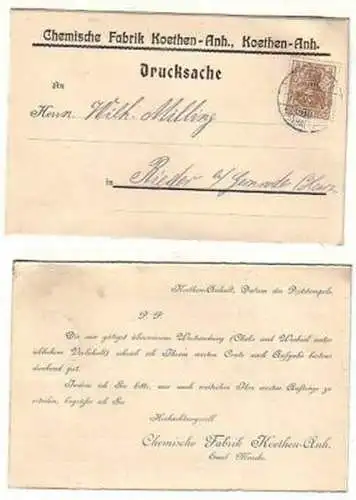 Chemische Fabrik Koethen-Anh., Koethen-Anh.
Drucksache
An
Herrn Wilh. Milling
in Rieder
Koethen-Anhalt, Datum des Poststempels.
P. P.
Die mir gütigst überwiesene (Checks und Wechsel unter
üblichem Vorbehalt) schrieb ich Ihrem werten Conto nach Aufgabe bestens
dankend gut.
Indem ich Sie bitte, mir auch weiterhin Ihre werten Aufträge zu
erteilen, begrüße ich Sie
Hochachtungsvoll
Chemische Fabrik Koethen-Anh.